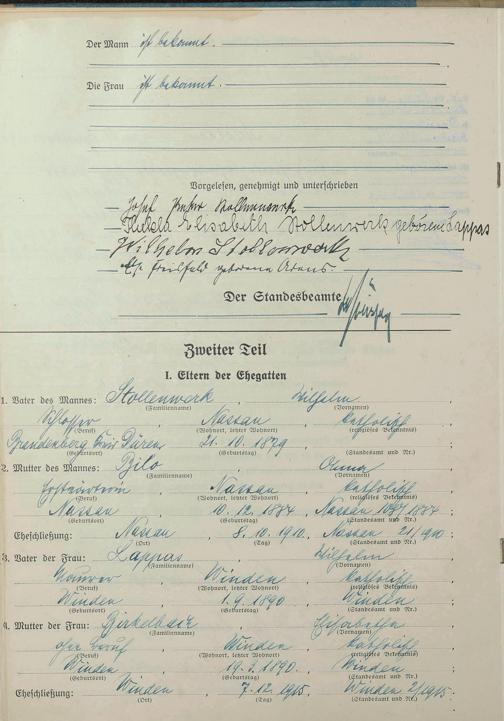 Der Mann ist bekannt.
Die Frau ist bekannt.
Vorgelesen, genehmigt und unterschrieben
Josef Stollenwerk
Hulda Elisabeth Stollenwerk geborene Lappas
Wilhelm Stollenwerk
geborene
Der Standesbeamte
Zweiter Teil
I. Eltern der Ehegatten
1. Vater des Mannes: Stollenwerk , Wilhelm ,
(Familienname) (Vornamen)
Schlosser , Nassau , katholisch
(Beruf) (Wohnort, letzter Wohnort) (religiöses Bekenntnis)
Brandenberg Kreis Düren 21. 10. 1879
(Geburtsort) (Geburtstag) (Standesamt und Nr.)
2. Mutter des Mannes: Bilo ,
(Familienname) (Vornamen)
, Nassau , katholisch
(Beruf) (Wohnort, letzter Wohnort) (religiöses Bekenntnis)
Nassau , 10. 12. 1884 , Nassau
(Geburtsort) (Geburtstag) (Standesamt und Nr.)
Eheschließung: Nassau , 8. 10. 1910 , Nassau 21/1910 ;
(Ort) (Tag) (Standesamt und Nr.)
3. Vater der Frau: Lappas , Wilhelm ,
(Familienname) (Vornamen)
Maurer , Winden , katholisch ;
(Beruf) (Wohnort, letzter Wohnort) (religiöses Bekenntnis)
Winden , 1. 9. 1890 , Winden ;
(Geburtsort) (Geburtstag) (Standesamt und Nr.)
4. Mutter der Frau: , Elisabetha ,
(Familienname) (Vornamen)
ohne Beruf , Winden , katholisch ,
(Beruf) (Wohnort, letzter Wohnort) (religiöses Bekenntnis)
Winden , 1890. , Winden ;
(Geburtsort) (Geburtstag) (Standesamt und Nr.)
Eheschließung: Winden , 7. 12. 1915 , Winden 2/1915 ;
(Ort) (Tag) (Standesamt und Nr.)